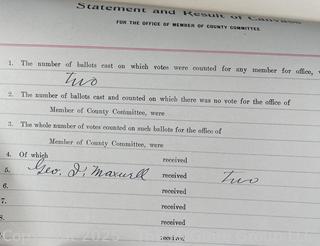 Statement and Result of Canvass
FOR THE OFFICE OF MEMBER OF COUNTY COMMITTEE
1. The number of ballots cast on which votes were counted for any member for office,
Two
2. The number of ballots cast and counted on which there was no vote for the office of
Member of County Committee, were
3. The whole number of votes counted on such ballots for the office of
Member of County Committee, were
4. Of which received
5. Geo. D. Maxwell received Two
6. received
7. received
8. received
received
Copyright 2025